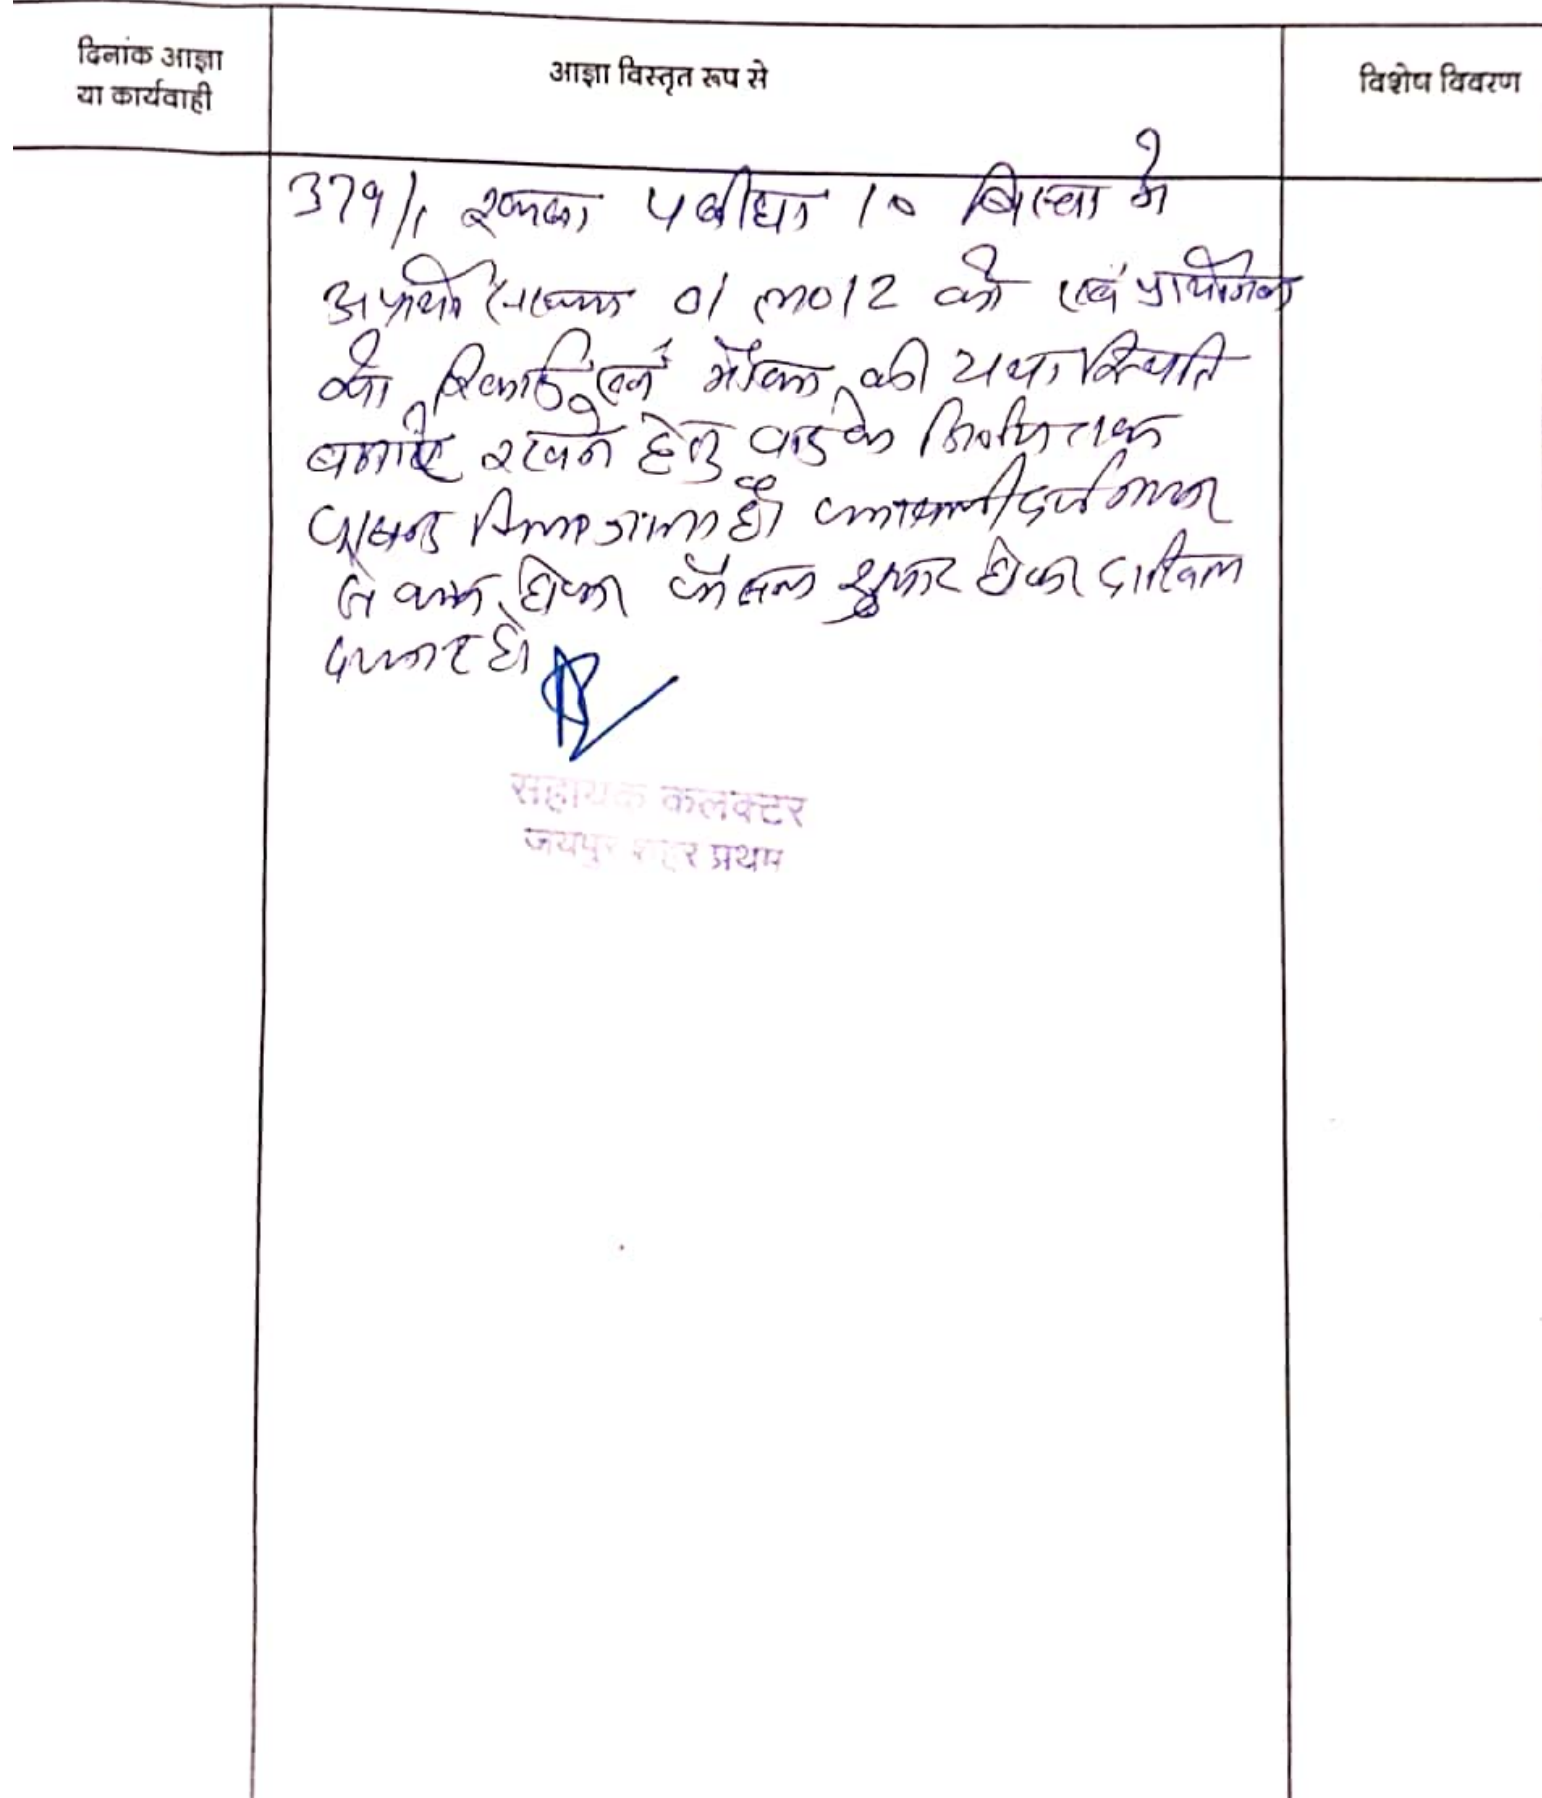 दिनांक आज्ञा
या कार्यवाही
आज्ञा विस्तृत रूप से
विशेष विवरण
379/1 रकबा 4 बीघा 10 बिस्वा मे
अप्रार्थी संख्या 01 ल0 12 को एवं प्रार्थीगण
को रिकार्ड एवं मौका की यथा स्थिति
बनाये रखने हेतु वाद के निर्णय तक
पाबन्द किया जाता है। पत्रावली दर्ज नम्बर
से कम होकर फैसल शुमार होकर दाखिल
दफ्तर हो।
सहायक कलक्टर
जयपुर शहर प्रथम